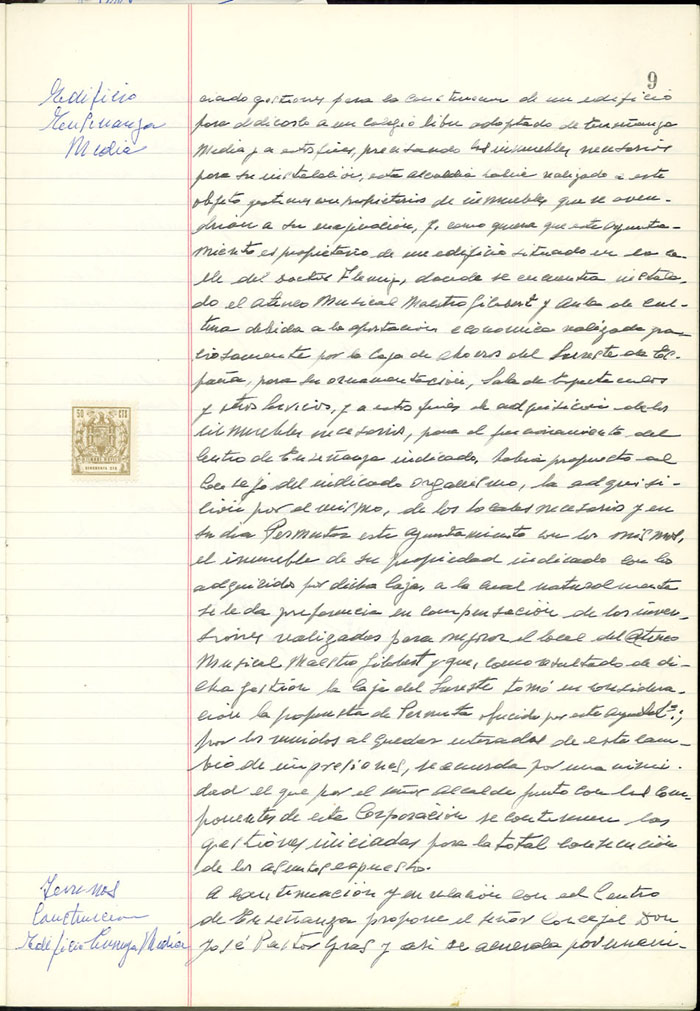 9
Edificio
Enseñanza
Media
ciado gestiones para la construccion de un edificio
para dedicarlo a un colegio libre adoptado de Enseñanza
Media y a estos fines, precisando los inmuebles necesarios
para su instalación, esta alcaldia habia realizado a este
objeto gestiones con propietarios de inmuebles que se aven-
drian a su enajenación, y, como quiera que este Ayunta-
miento es propietario de un edificio situado en la ca-
lle del Doctor Fleming, donde se encuentra instala-
do el Ateneo Musical Maestro Gilabert y Aula de Cul-
tura debida a la aportación economica realizada gra-
ciosamente por la Caja de Ahorros del Sureste de Es-
paña, para su ornamentación, Sala de Espectaculos
y otros Servicios, y a estos fines de adquisicion de los
inmuebles necesarios, para el funcionamiento del
Centro de Enseñanza indicado, habia propuesto al
Consejo del indicado organismo, la adquisi-
ción por el mismo, de los locales necesarios y en
su dia Permutar este Ayuntamiento con los mismos,
el inmueble de su propiedad indicado con lo
adquirido por dicha Caja, a la cual naturalmente
se le da preferencia en compensación de los inver-
siones realizadas para mejorar el local del Ateneo
Musical Maestro Gilabert y que, como resultado de di-
cha gestión la Caja del Sureste tomó en considera-
ción la propuesta de Permuta ofrecida por este
por los reunidos al quedar enterados de este cam-
bio de impresiones, se acuerda por unanimi-
dad el que por el señor Alcalde junto con los Com-
ponentes de esta Corporación se continuen las
gestiones iniciadas para la total consecución
de los asuntos expuesto.
Terrenos
Construccion
Edificio Media
A continuación y en relación con el Centro
de Enseñanza propone el señor Concejal Don
José Pastor Gras y asi se acuerda por unani-
50 CTS